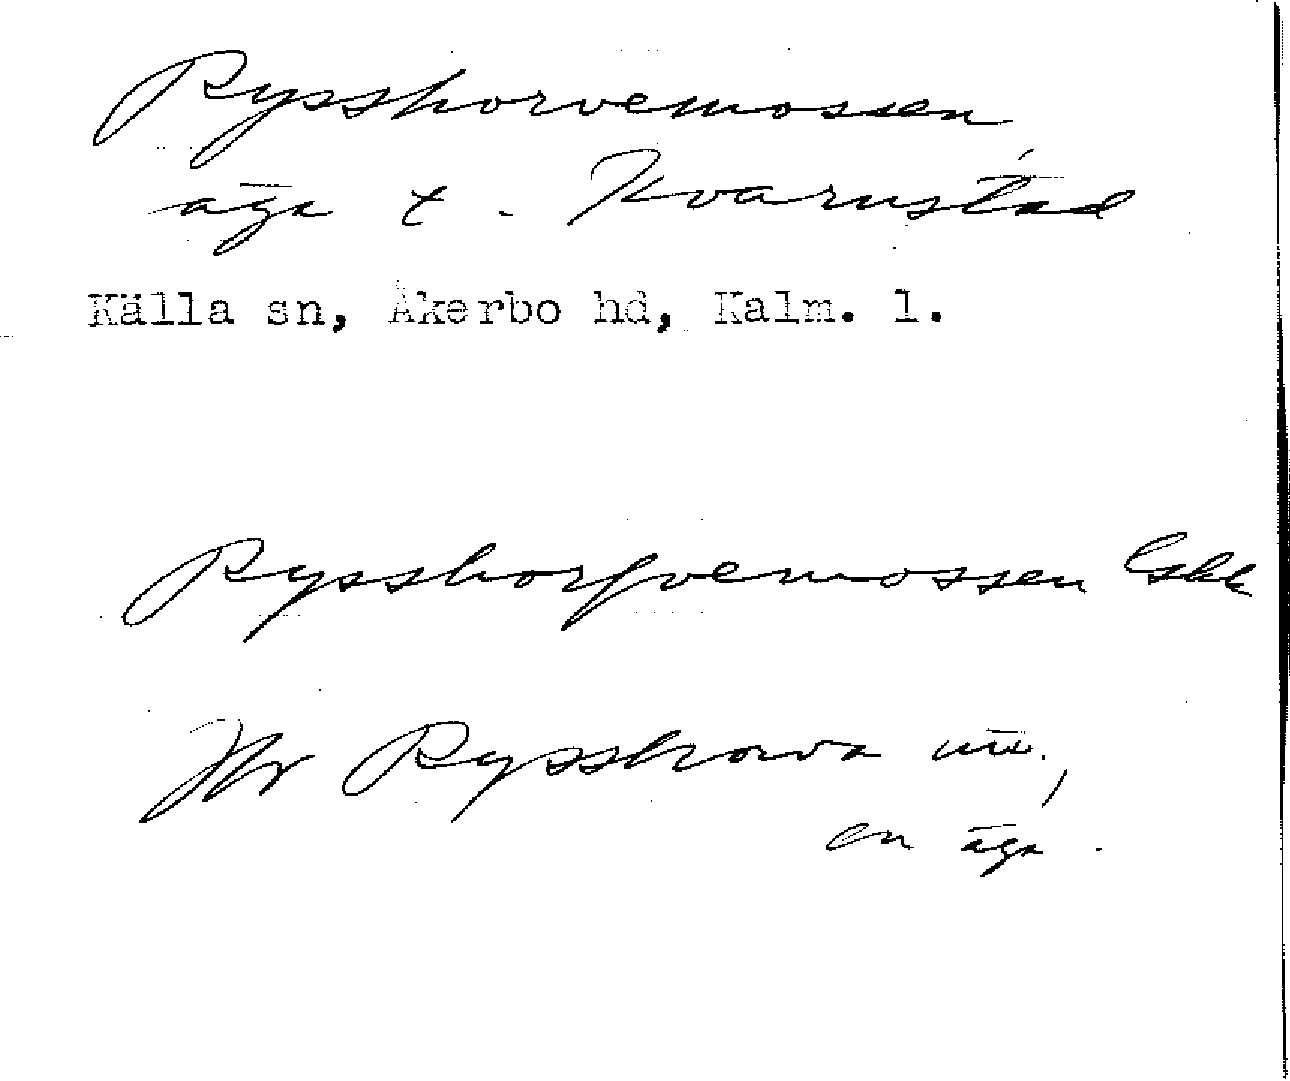 Rysshorvemossen
äga t. Kvarnstad
Källa sn, Åkerbo hd, Kalm. l.
Rysshorfvemossen Gskk
Jfr Rysshorva
en äga.